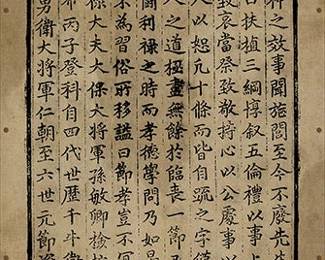 科之效事聞旌閭至今不廢先生
日扶植三綱惇叙五倫禮以事上
致哀當祭致敬持心以公處事以
人以恕凡十條而皆自䟽之字傎
人之道極盡無餘於臨丧一節乃
鬪利祿之時而孝德學問乃如是
不爲習俗所移謚曰節孝豈不冥
祿大夫大保大將軍孫敏卿檢校
希丙子登科自四代世歴千牛衛
男衛大將軍仁朝至六世元節